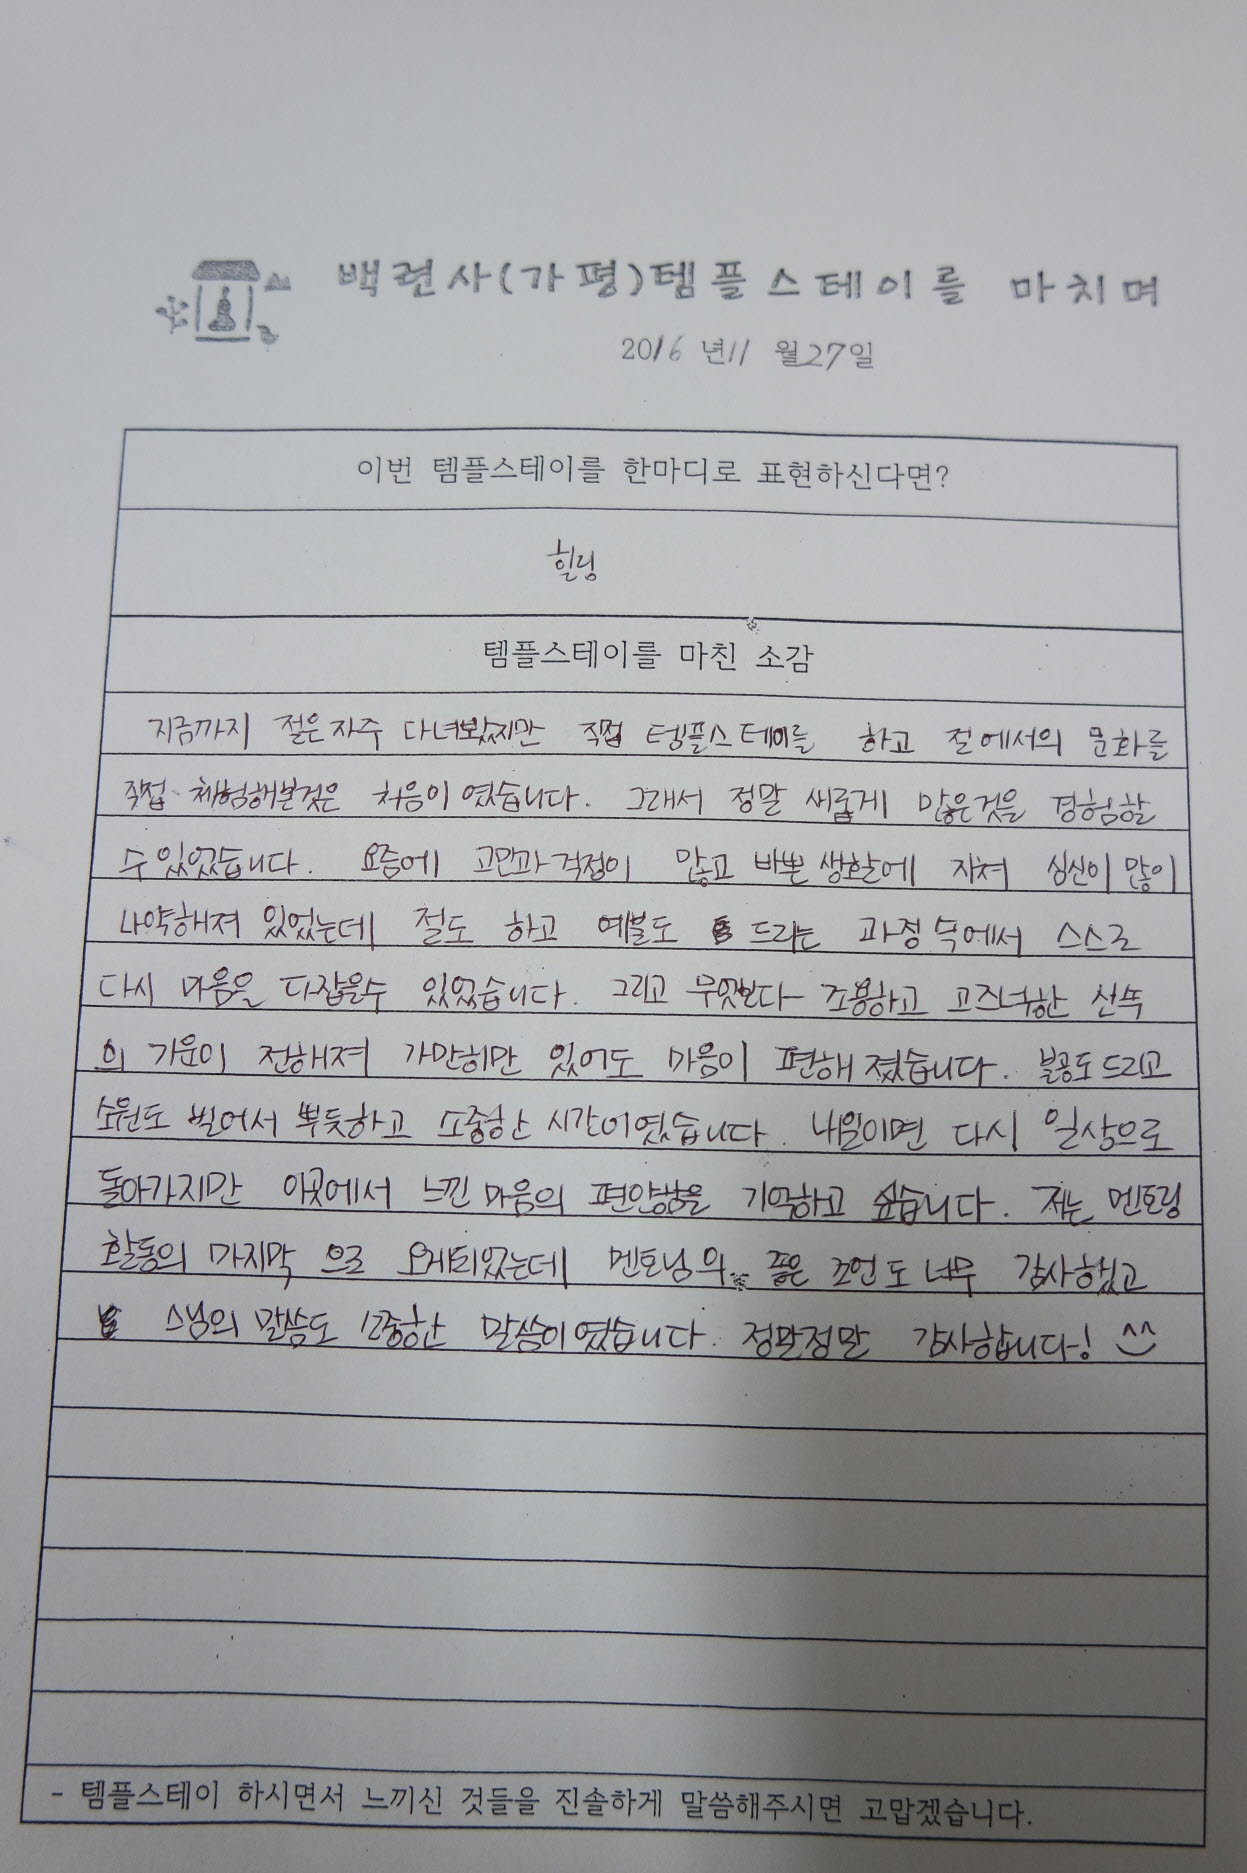 백련사(가평)템플스테이를 마치며
2016년 11월 27일
이번 템플스테이를 한마디로 표현하신다면?
힐링
템플스테이를 마친 소감
지금까지 절은 자주 다녀봤지만 직접 템플스테이를 하고 절에서의 문화를
직접 체험해본것은 처음이였습니다. 그래서 정말 새롭게 많은것을 경험할
수 있었습니다. 요즘에 고민과 걱정이 많고 바쁜 생활에 지쳐 심신이 많이
나약해져 있었는데 절도 하고 예불도 드리는 과정 속에서 스스로
다시 마음을 다잡을수 있었습니다. 그리고 무엇보다 조용하고 고즈넉한 산속
의 기운이 전해져 가만히만 있어도 마음이 편해 졌습니다. 불공도 드리고
소원도 빌어서 뿌듯하고 소중한 시간이였습니다. 내일이면 다시 일상으로
돌아가지만 이곳에서 느낀 마음의 편안함을 기억하고 싶습니다. 저는 멘토링
활동의 마지막 으로 오게되었는데 멘토님의 좋은 조언도 너무 감사했고
스님의 말씀도 소중한 말씀이였습니다. 정말정말 감사합니다! ^^
- 템플스테이 하시면서 느끼신 것들을 진솔하게 말씀해주시면 고맙겠습니다.